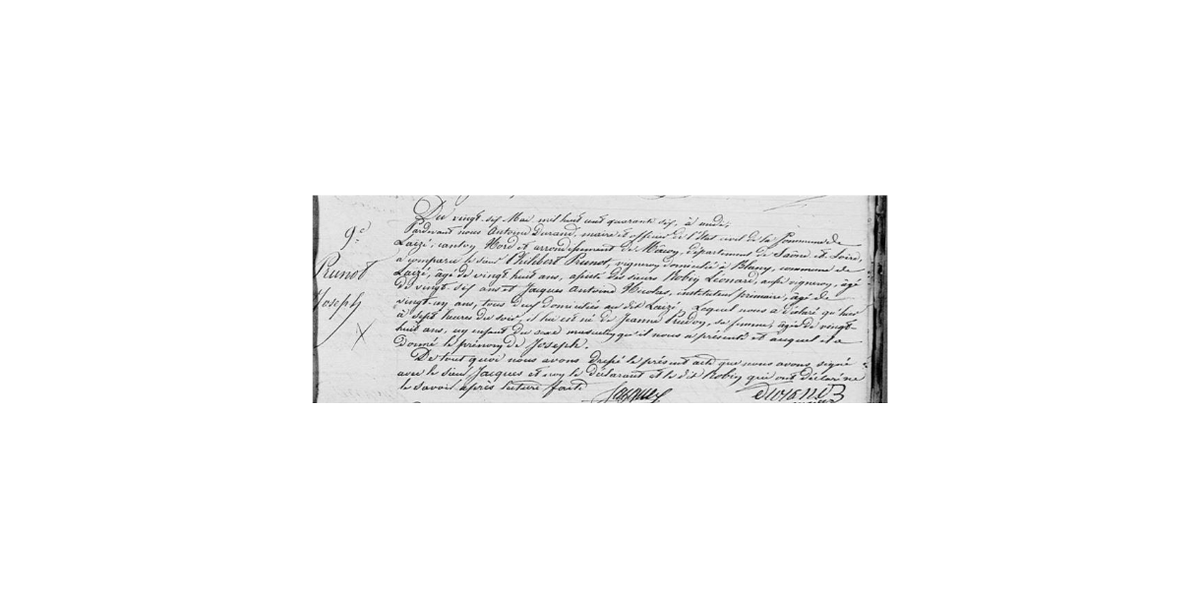 9e
Prunot
Joseph
Du vingt-six Mai mil huit cent quarante six, à midi,
Pardevant nous Antoine Durand, maire et officier de l'Etat civil de la Commune de
Laizé, canton Nord et arrondissement de Mâcon, département de Saône et Loire,
a comparu le sieur Philibert Prunot, vigneron domicilié à Blany, commune de
Laizé, âgé de vingt huit ans, assisté des sieurs Robin Léonard, aussi vigneron, âgé
de vingt-six ans et Jacques Antoine Nicolas, instituteur primaire, âgé de
vingt-un ans, tous deux domiciliés au dit Laizé. Lequel nous a déclaré qu'hier
à sept heures du soir, il lui est né de Jeanne Prudon, sa femme, âgée de vingt-
huit ans, un enfant du sexe masculin qu'il nous a présenté et auquel il a
donné le prénom de Joseph.
De tout quoi nous avons dressé le présent acte que nous avons signé
avec le sieur Jacques et non le déclarant et le dit Robin qui ont déclaré ne
le savoir après lecture faite
Jacques Durand
maire